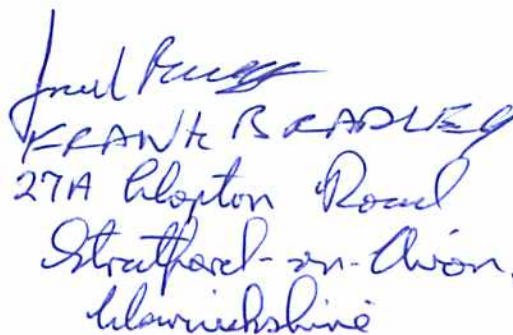 FRANK BRADLEY
27A Clopton Road
Stratford-on-Avon,
Warwickshire